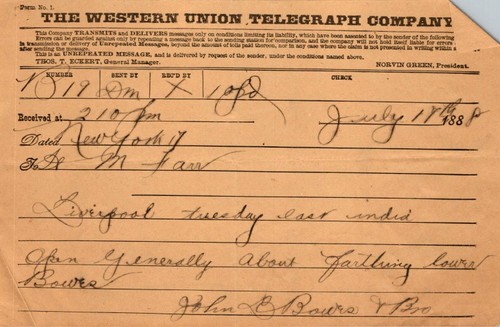 Form No. 1.
THE WESTERN UNION TELEGRAPH COMPANY.
This Company TRANSMITS and DELIVERS messages only on conditions limiting its liability, which have been assented to by the sender of the following
Errors can be guarded against only by repeating a message back to the sending station for comparison, and the company will not hold itself liable for errors
in transmission or delivery of Unrepeated Messages, beyond the amount of this paid thereon, nor in any case where the claim is not presented in writing within
after sending the message.
This is an UNREPEATED MESSAGE, and is delivered by request of the sender, under the conditions named above.
THOS. T. ECKERT, General Manager. NORVIN GREEN, President.
NUMBER SENT BY REC'D BY CHECK
19 Dm X 10
Received at 210 pm July 18 1888
Dated New York 17
To H M Farr
Liverpool tuesday east india
Open Generally About farthing lower
Bowes
John L Bowes & Bro